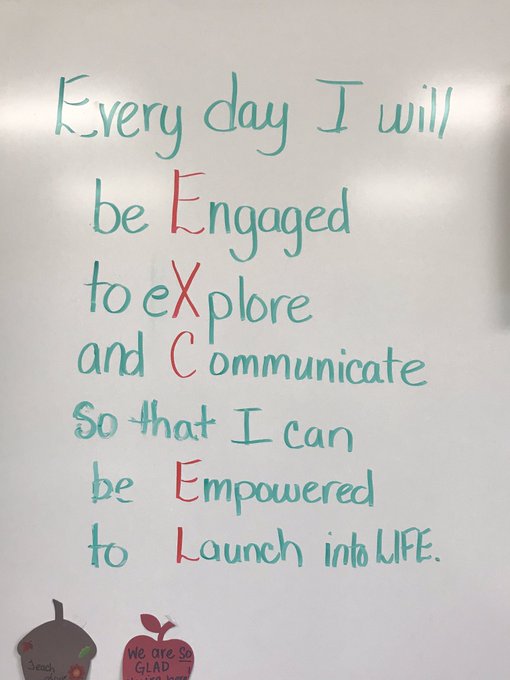 Every day I will
be Engaged
to eXplore
and Communicate
So that I can
be Empowered
to Launch into LIFE.
Teach
We are So
GLAD